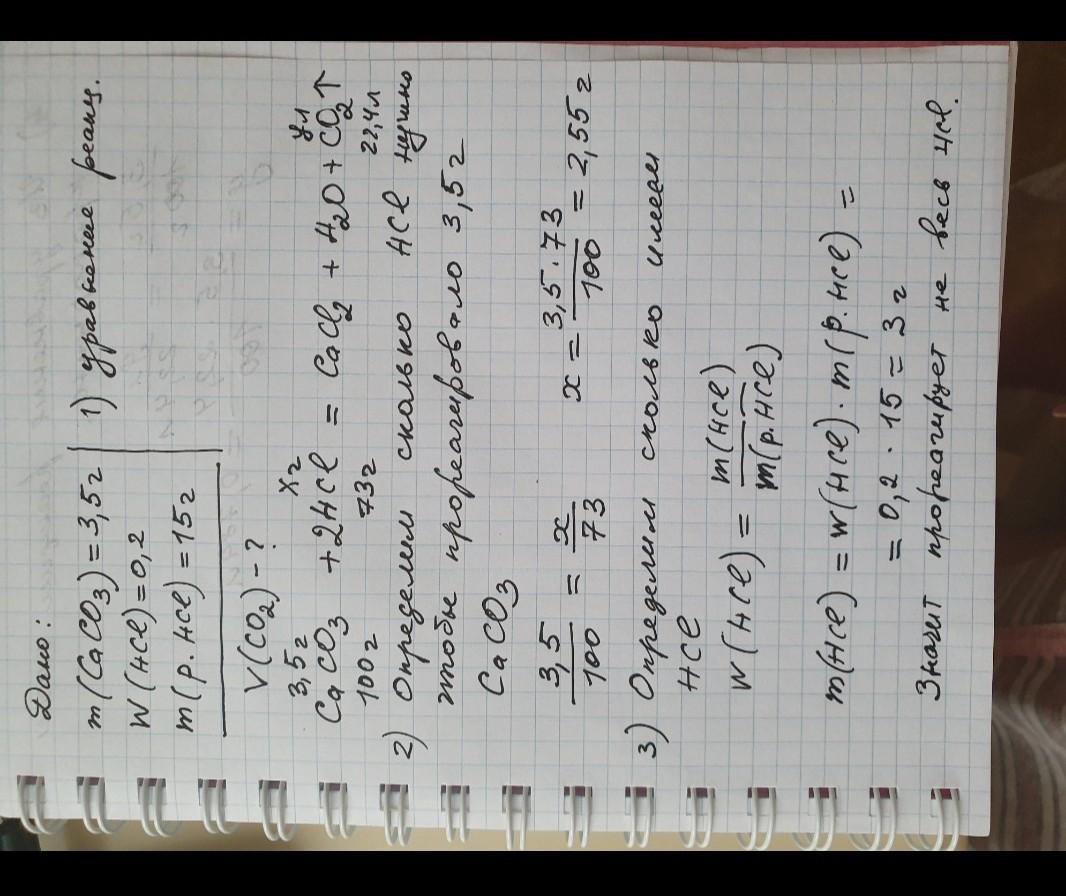 Дано:
m(CaCO3)=3,5г
W(HCl)=0,2
m(р.HCl)=15г
V(CO2)-?
1) уравнение реакц.
3,5г xг yл
CaCO3 +2HCl = CaCl2 + H2O + CO2↑
100г 73г 22,4л
2) Определим сколько HCl нужно
чтобы прореагировало 3,5г
CaCO3
3,5/100 = x/73 x = 3,5·73/100 = 2,55г
3) Определим сколько имеем
HCl
W(HCl) = m(HCl)/m(р.HCl)
m(HCl) = W(HCl)·m(р.HCl) =
= 0,2·15 = 3г
Значит прореагирует не весь HCl.